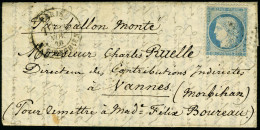 Par ballon monté
Monsieur Charles Ruelle
Directeur des Contributions Indirectes
à
Vannes
(Morbihan)
(Pour remettre à Made Félix Boureau)